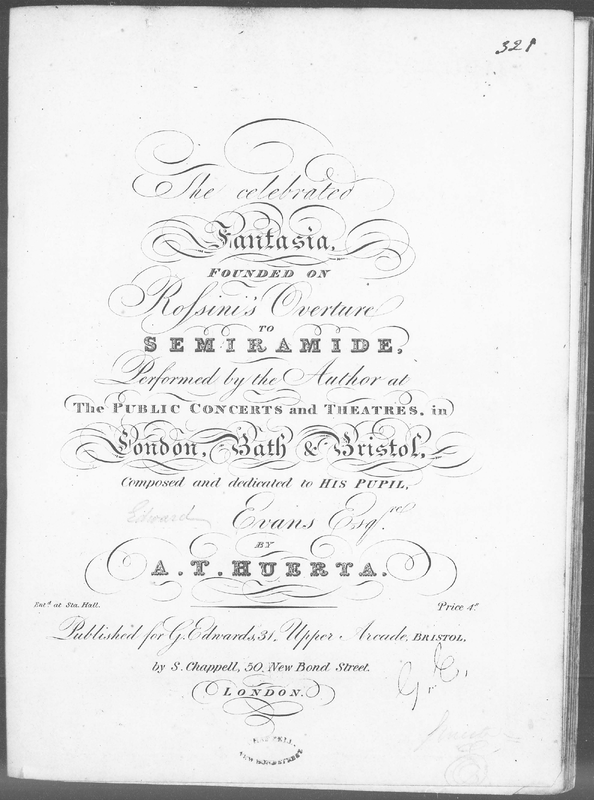 321
The celebrated
Fantasia,
FOUNDED ON
Roſsini's Overture
TO
SEMIRAMIDE,
Performed by the Author at
The PUBLIC CONCERTS and THEATRES, in
London, Bath & Bristol,
Composed and dedicated to HIS PUPIL,
Edward Evans Esqre.
BY
A. T. HUERTA.
Entd. at Sta. Hall. Price 4s.
Published for G. Edwards, 31, Upper Arcade, BRISTOL,
by S. Chappell, 50, New Bond Street.
LONDON.
CHAPPELL
NEW BOND STREET